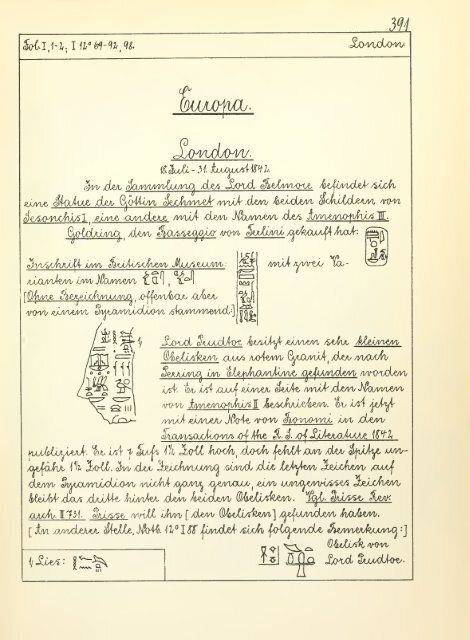 391
Fol. I, 1-2; I 12° 69-92, 98. London
Europa.
London.
18. Juli - 31. August 1842.
In der Sammlung des Lord Belmore befindet sich
eine Statue der Göttin Sechmet mit den beiden Schildern von
Sesonchis I, eine andere mit den Namen des Amenophis III.
Goldring, den Basseggio von Ferlini gekauft hat:
Inschrift im Britischen Museum: mit zwei Va-
rianten im Namen
[Ohne Bezeichnung, offenbar aber
von einem Pyramidion stammend:]
1) Lord Prudhoe besitzt einen sehr kleinen
Obelisken aus rotem Granit, der nach
Perring in Elephantine gefunden worden
ist. Er ist auf einer Seite mit den Namen
von Amenophis II beschrieben. Er ist jetzt
mit einer Note von Bonomi in den
Transactions of the R. S. of Literature 1842
publiziert. Er ist 7 Fuß 1½ Zoll hoch, doch fehlt an der Spitze un-
gefähr 1½ Zoll. In der Zeichnung sind die letzten Zeichen auf
dem Pyramidion nicht ganz genau, ein ungewisses Zeichen
bleibt das dritte hinter den beiden Obelisken. Vgl. Prisse Rev.
arch. II 731. Prisse will ihn [den Obelisken] gefunden haben.
[An anderer Stelle, Notb. 12° I 88 findet sich folgende Bemerkung:]
Obelisk von
1) Lies: Lord Prudhoe.